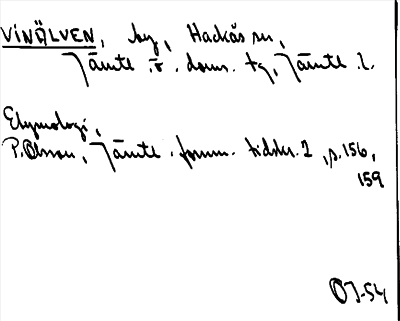 VINÄLVEN, by, Hackås sn,
Jämtl. v. doms. tg, Jämtl. l.
Etymologi,
P. Olsson, Jämtl. fornm. tidskr. 1, s. 156,
159
OJ-54